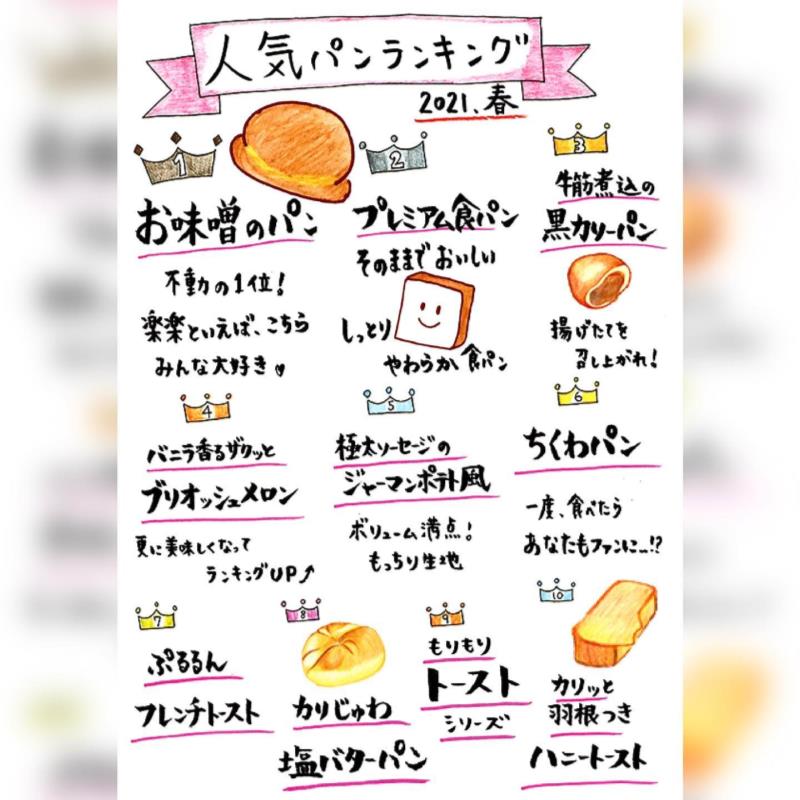 人気パンランキング
2021、春
1
お味噌のパン
不動の1位!
楽楽といえば、こちら
みんな大好き♥
2
プレミアム食パン
そのままでおいしい
しっとり
やわらか食パン
3
牛筋煮込の
黒カリーパン
揚げたてを
召し上がれ!
4
バニラ香るザクッと
ブリオッシュメロン
更に美味しくなって
ランキングUP↗
5
極太ソーセージの
ジャーマンポテト風
ボリューム満点!
もっちり生地
6
ちくわパン
一度、食べたら
あなたもファンに…!?
7
ぷるるん
フレンチトースト
8
カリじゅわ
塩バターパン
9
もりもり
トースト
シリーズ
10
カリッと
羽根つき
ハニートースト